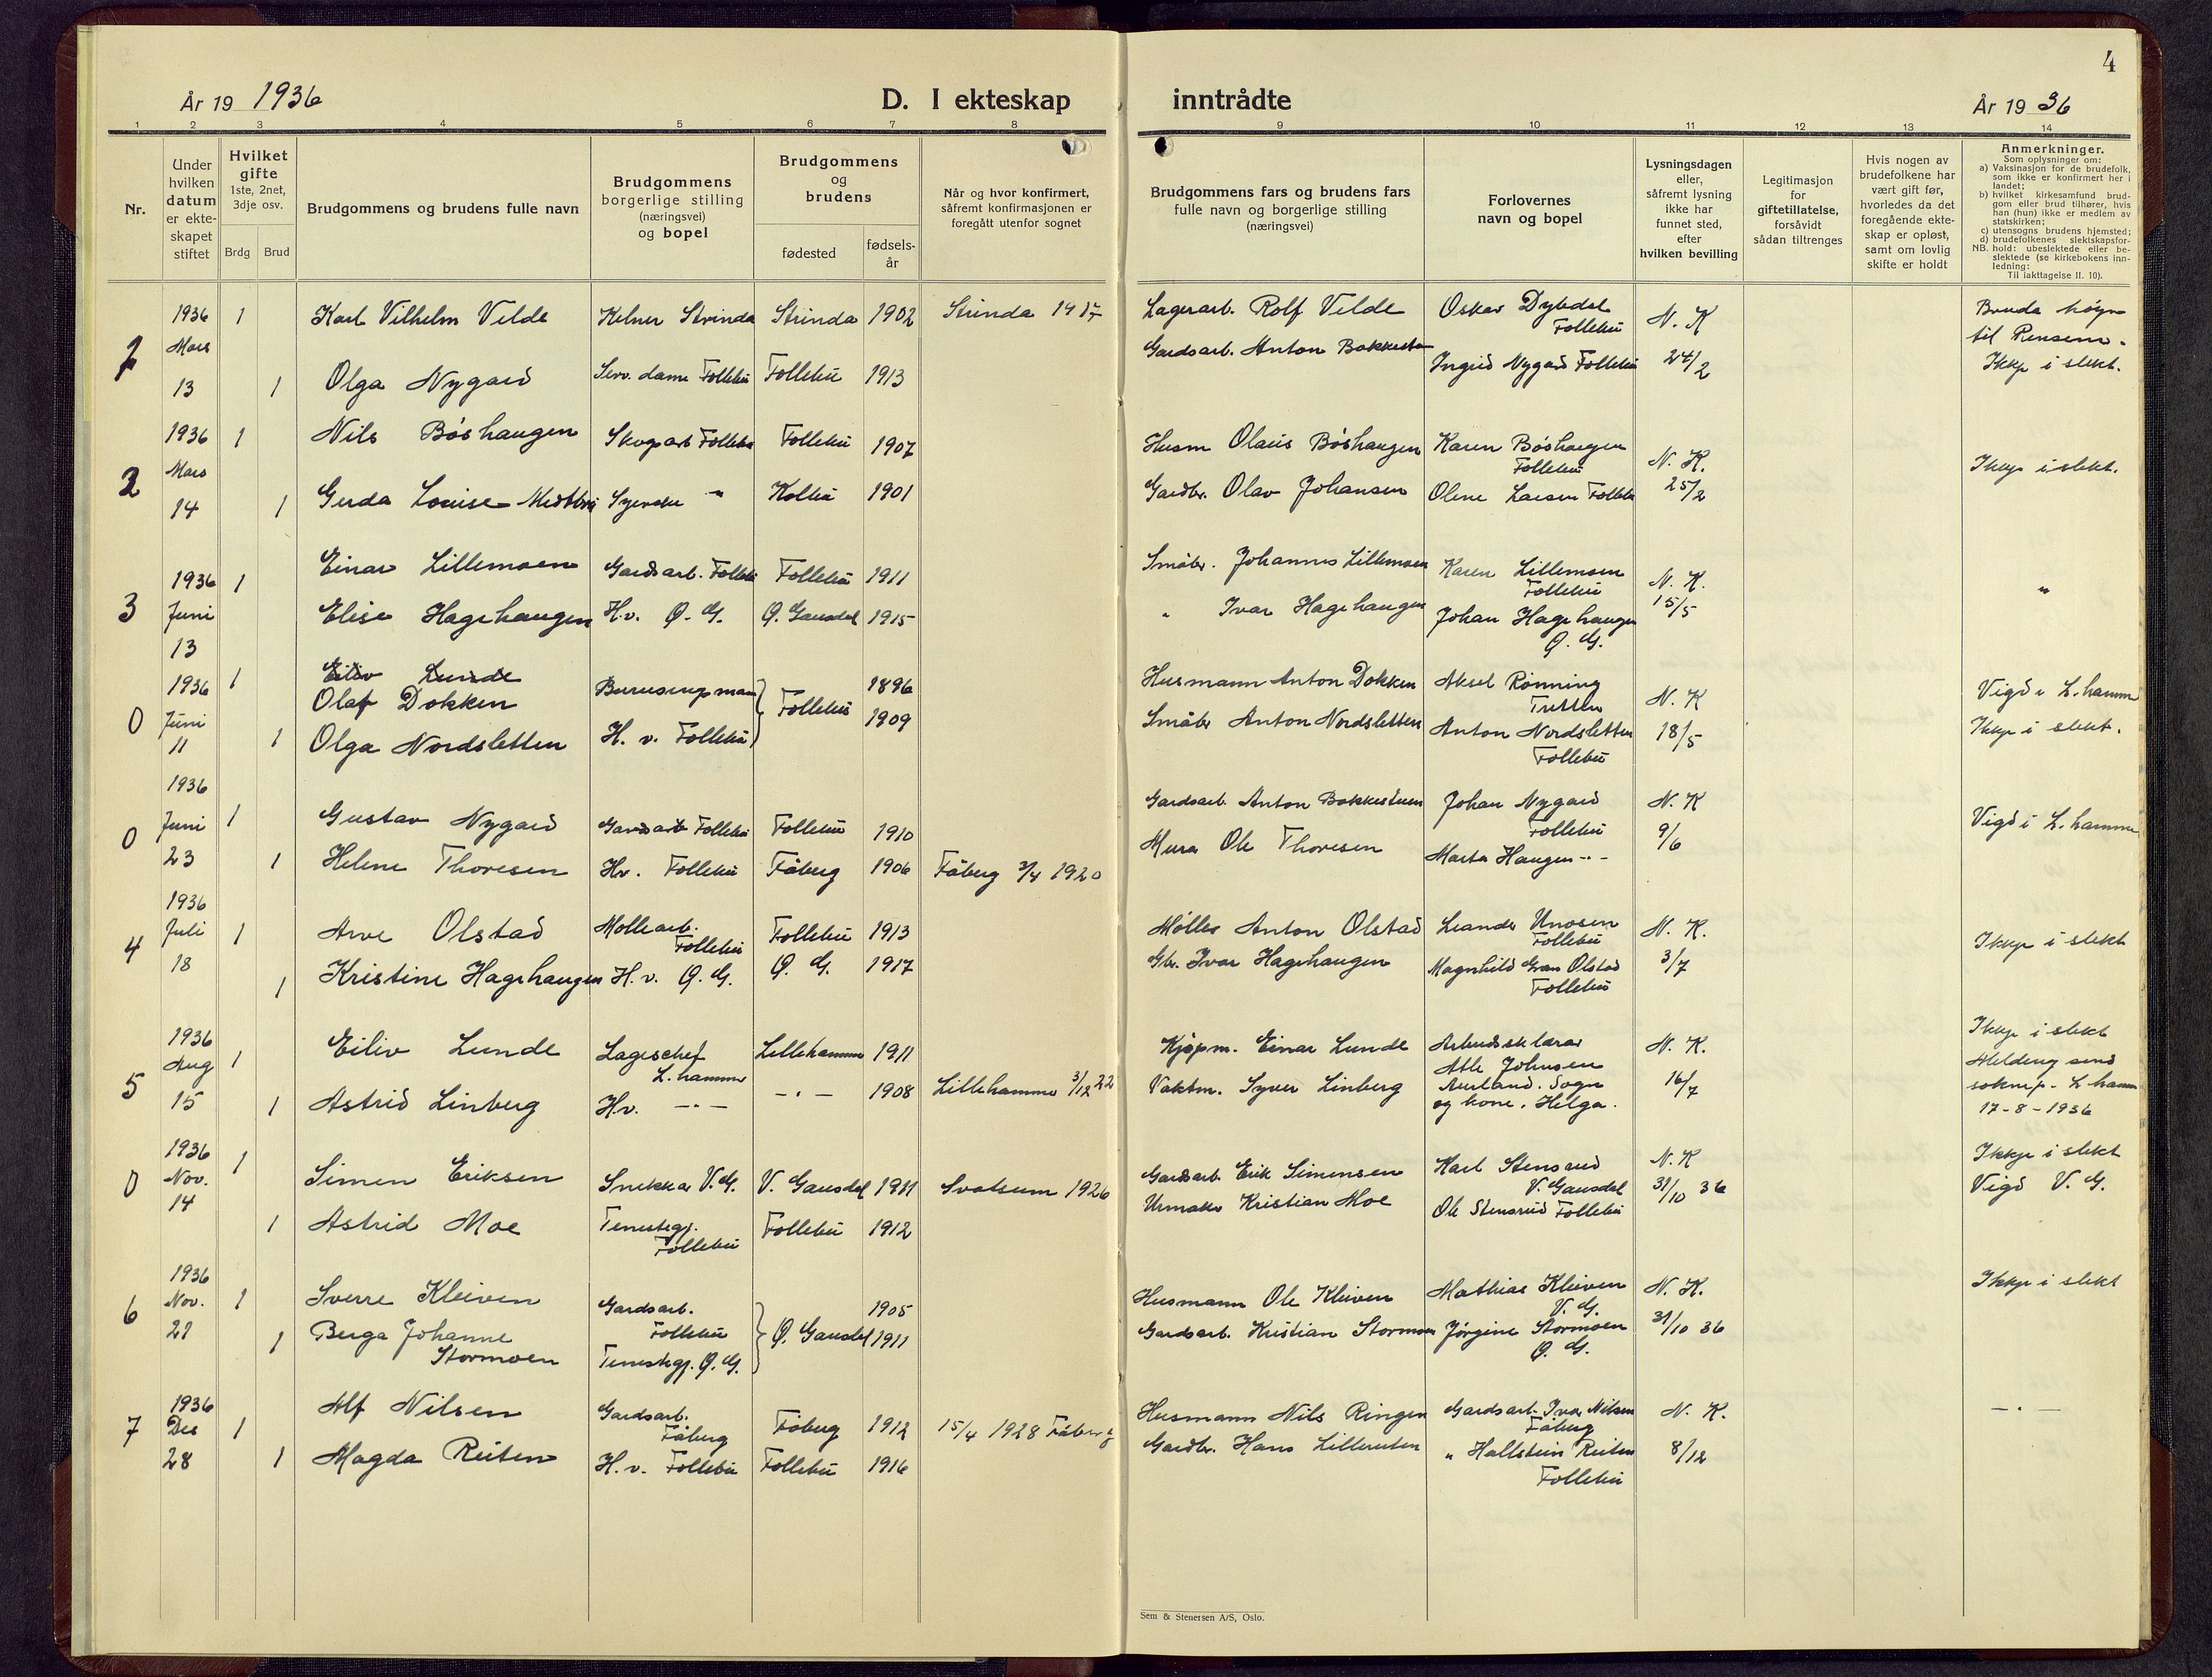 4
År 19 1936
D. I ekteskap inntrådte
År 19 36
1 2 3 4 5 6 7 8 9 10 11 12 13 14
Nr.
Under hvilken datum er ekte-skapet stiftet
Hvilket gifte
1ste, 2net, 3dje osv.
Brdg Brud
Brudgommens og brudens fulle navn
Brudgommens borgerlige stilling (næringsvei) og bopel
Brudgommens og brudens
fødested
fødsels-år
Når og hvor konfirmert, såfremt konfirmasjonen er foregått utenfor sognet
Brudgommens fars og brudens fars fulle navn og borgerlige stilling (næringsvei)
Forlovernes navn og bopel
Lysningsdagen eller, såfremt lysning ikke har funnet sted, efter hvilken bevilling
Legitimasjon for giftetillatelse, forsåvidt sådan tiltrenges
Hvis nogen av brudefolkene har vært gift før, hvorledes da det foregående ekte-skap er opløst, samt om lovlig skifte er holdt
Anmerkninger.
Som oplysninger om:
a) Vaksinasjon for de brudefolk, som ikke er konfirmert her i landet;
b) hvilket kirkesamfund brud-gom eller brud tilhører, hvis han (hun) ikke er medlem av statskirken;
c) utensogns brudens hjemsted;
d) brudefolkenes slektskapsfor-hold: ubeslektede eller be-slektede (se kirkebokens inn-ledning:
NB.
Til iakttagelse II. 10).
1 1936 Mars 13 1 Karl Vilhelm Velde Kelner Strinda Strinda 1902 Strinda 1917 Lagerarb. Rolf Velde Oskar Dybdal Follebu N. K 24/2
1 Olga Nygard Serv. dame Follebu Follebu 1913 Gardsarb. Anton Bakkestu Ingrid Nygard Follebu
til
Ikkje i slekt.
2 1936 Mars 14 1 Nils Bøshaugen Skogsarb Follebu Follebu 1907 Husm Olaus Bøshaugen Karen Bøshaugen Follebu N. K. 25/2 Ikkje i slekt.
1 Gerda Louise Kolbu 1901 Gardbr. Olav Johansen Olene Larsen Follebu
3 1936 Juni 13 1 Einar Lillemoen Gardsarb. Follebu Follebu 1911 Småbr. Johannes Lillemoen Karen Lillemoen Follebu N. K. 15/5 "
Elise Hagehaugen H.v. Ø. G. Ø. Gausdal 1915 " Ivar Hagehaugen Johan Hagehaugen Ø. G.
0 1936 Juni 11 1 Eiliv Lunde
Olaf Dokken Follebu 1896 Husmann Anton Dokken Aksel Rønning Tretten N. K 18/5 Vigd i L.hammer
1 Olga Nordsletten H. v. Follebu 1909 Småbr Anton Nordsletten Anton Nordsletten Follebu Ikkje i slekt.
0 1936 Juni 23 1 Gustav Nygard Gardsarb Follebu Follebu 1910 Gardsarb. Anton Bakkestuen Johan Nygard Follebu N. K 9/6 Vigd i L. hammer
1 Helene Thoresen Hv. Follebu Fåberg 1906 Fåberg 3/4 1920 Mura Ole Thoresen Marta Haugen -"-
4 1936 Juli 18 1 Arve Olstad Møllearb. Follebu Follebu 1913 Møller Anton Olstad Leander Unosen Follebu N. K. 3/7 Ikkje i slekt
1 Kristine Hagehaugen H. v. Ø. G. Ø. G. 1917 Gbr. Ivar Hagehaugen Magnhild Gran Olstad Follebu
5 1936 Aug 15 1 Eiliv Lunde Lagerchef L. hammer Lillehammer 1911 Kjøpm. Einar Lunde Arbeidslærar Atle Johnsen N. K. 16/7 Ikkje i slekt
1 Astrid Linberg Hv. -"- -"- 1908 Lillehammer 3/12 22 Vaktm. Syver Linberg Aurland. Sogn og kone. Helga. Melding send soknep. L.hamm 17-8-1936
0 1936 Nov. 14 1 Simen Eriksen Snekkar V. G. V. Gausdal 1911 Svatsum 1926 Gardsarb. Erik Simensen Karl Stensrud V. Gausdal N. K 31/10 36 Ikkje i slekt
1 Astrid Moe Tenestegj. Follebu Follebu 1912 Urmaker Kristian Moe Ole Stensrud Follebu Vigd V. G.
6 1936 Nov. 21 1 Sverre Kleiven Gardsarb. Follebu Ø. Gausdal 1905 Husmann Ole Kleiven Mathias Kleiven V. G. N. K. 31/10 36 Ikkje i slekt
1 Berga Johanne Stormoen Tenestegj. Ø. G. 1911 Gardsarb. Kristian Stormoen Jørgine Stormoen Ø. G.
7 1936 Des 28 1 Alf Nilsen Gardsarb. Fåberg Fåberg 1912 15/4 1928 Fåberg Husmann Nils Ringen Gardsarb. Ivar Nilsen Fåberg N. K. 8/12 -"-
1 Magda Reiten H. v. Follebu Follebu 1916 Gardbr. Hans Lillereiten " Hallstein Reiten Follebu
Sem & Stenersen A/S, Oslo.